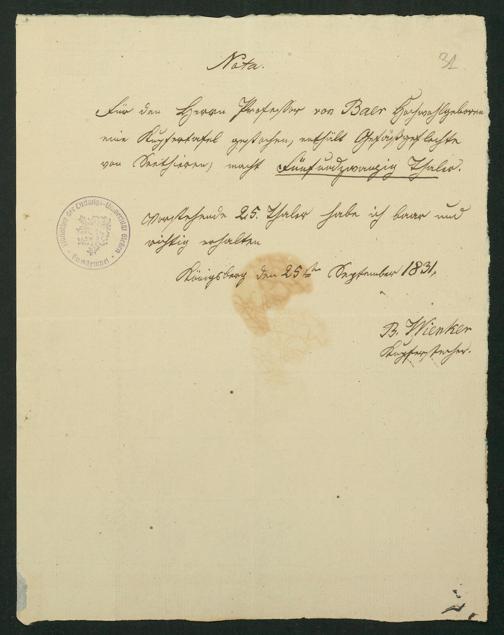 31
Nota.
Für den Herrn Professor von Baer Hochwohlgeboren
eine Kupfertafel gestochen, enthält Gefäßgeflechte
von Seethieren, macht Fünfundzwanzig Thaler.
Vorstehende 25. Thaler habe ich baar und
richtig erhalten
Königsberg den 25ten September 1831,
B. Wienker
Kupferstecher.